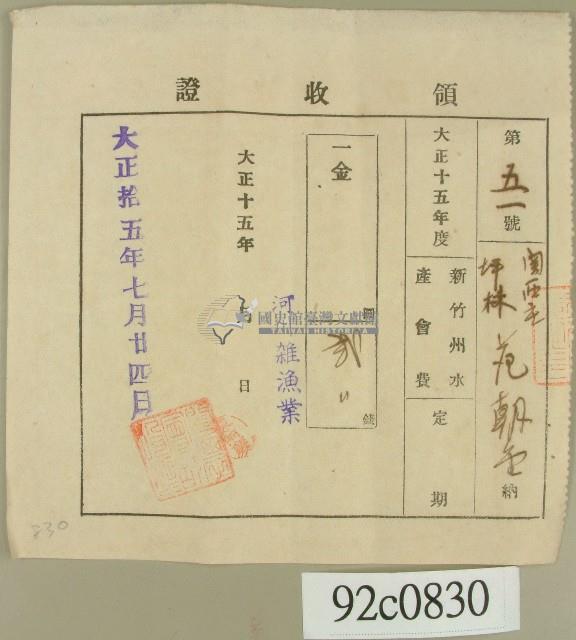 領收證
第五一號
關西庄
坪林 范朝 納
大正十五年度
新竹州水
產會費
定期
一金
圓 錢
河 雜漁業
大正十五年 日
大正拾五年七月廿四日
國史館臺灣文獻館
TAIWAN HISTORICA
830
92c0830